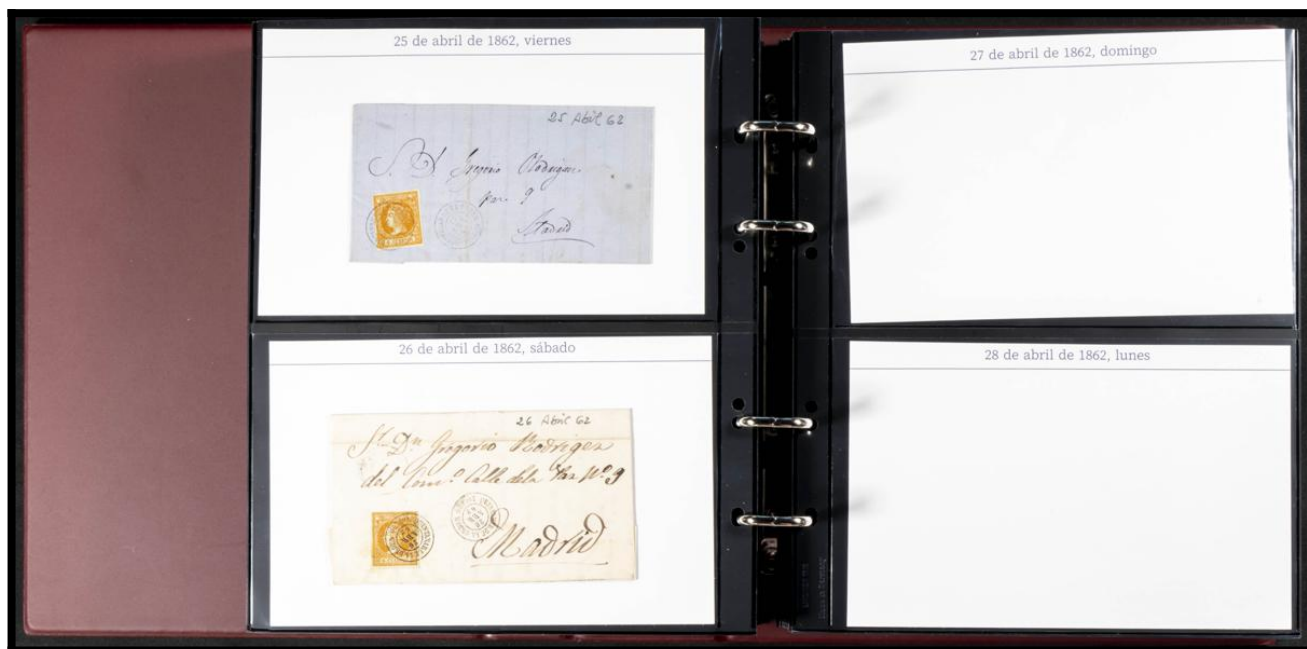 25 de abril de 1862, viernes
25 Abril 62
S. D. Gregorio Rodriguez
Paz 9
Madrid
26 de abril de 1862, sábado
26 Abril 62
Sr. Dn. Gregorio Rodrigez
del Comº Calle dela Paz Nº 9
Madrid
27 de abril de 1862, domingo
28 de abril de 1862, lunes